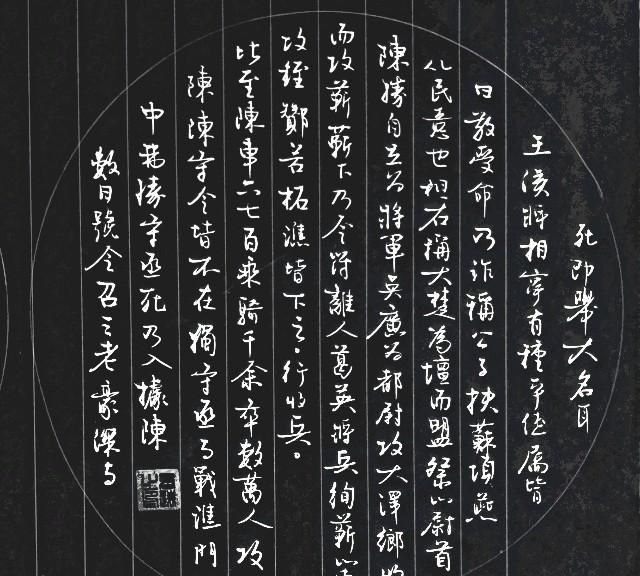 死即舉大名耳
王侯將相寧有種乎徒屬皆
曰敬受命乃詐稱公子扶蘇項燕
从民意也袒右稱大楚為壇而盟祭以尉首
陳勝自立為將軍吳廣為都尉攻大澤鄉收
而攻蘄蘄下乃令符離人葛英將兵徇蘄以
攻銍酇苦柘譙皆下之行收兵
比至陳車六七百乘騎千余卒數萬人攻
陳陳守令皆不在獨守丞与戰譙門
中弗勝守丞死乃入據陳
數日號令召三老豪傑与